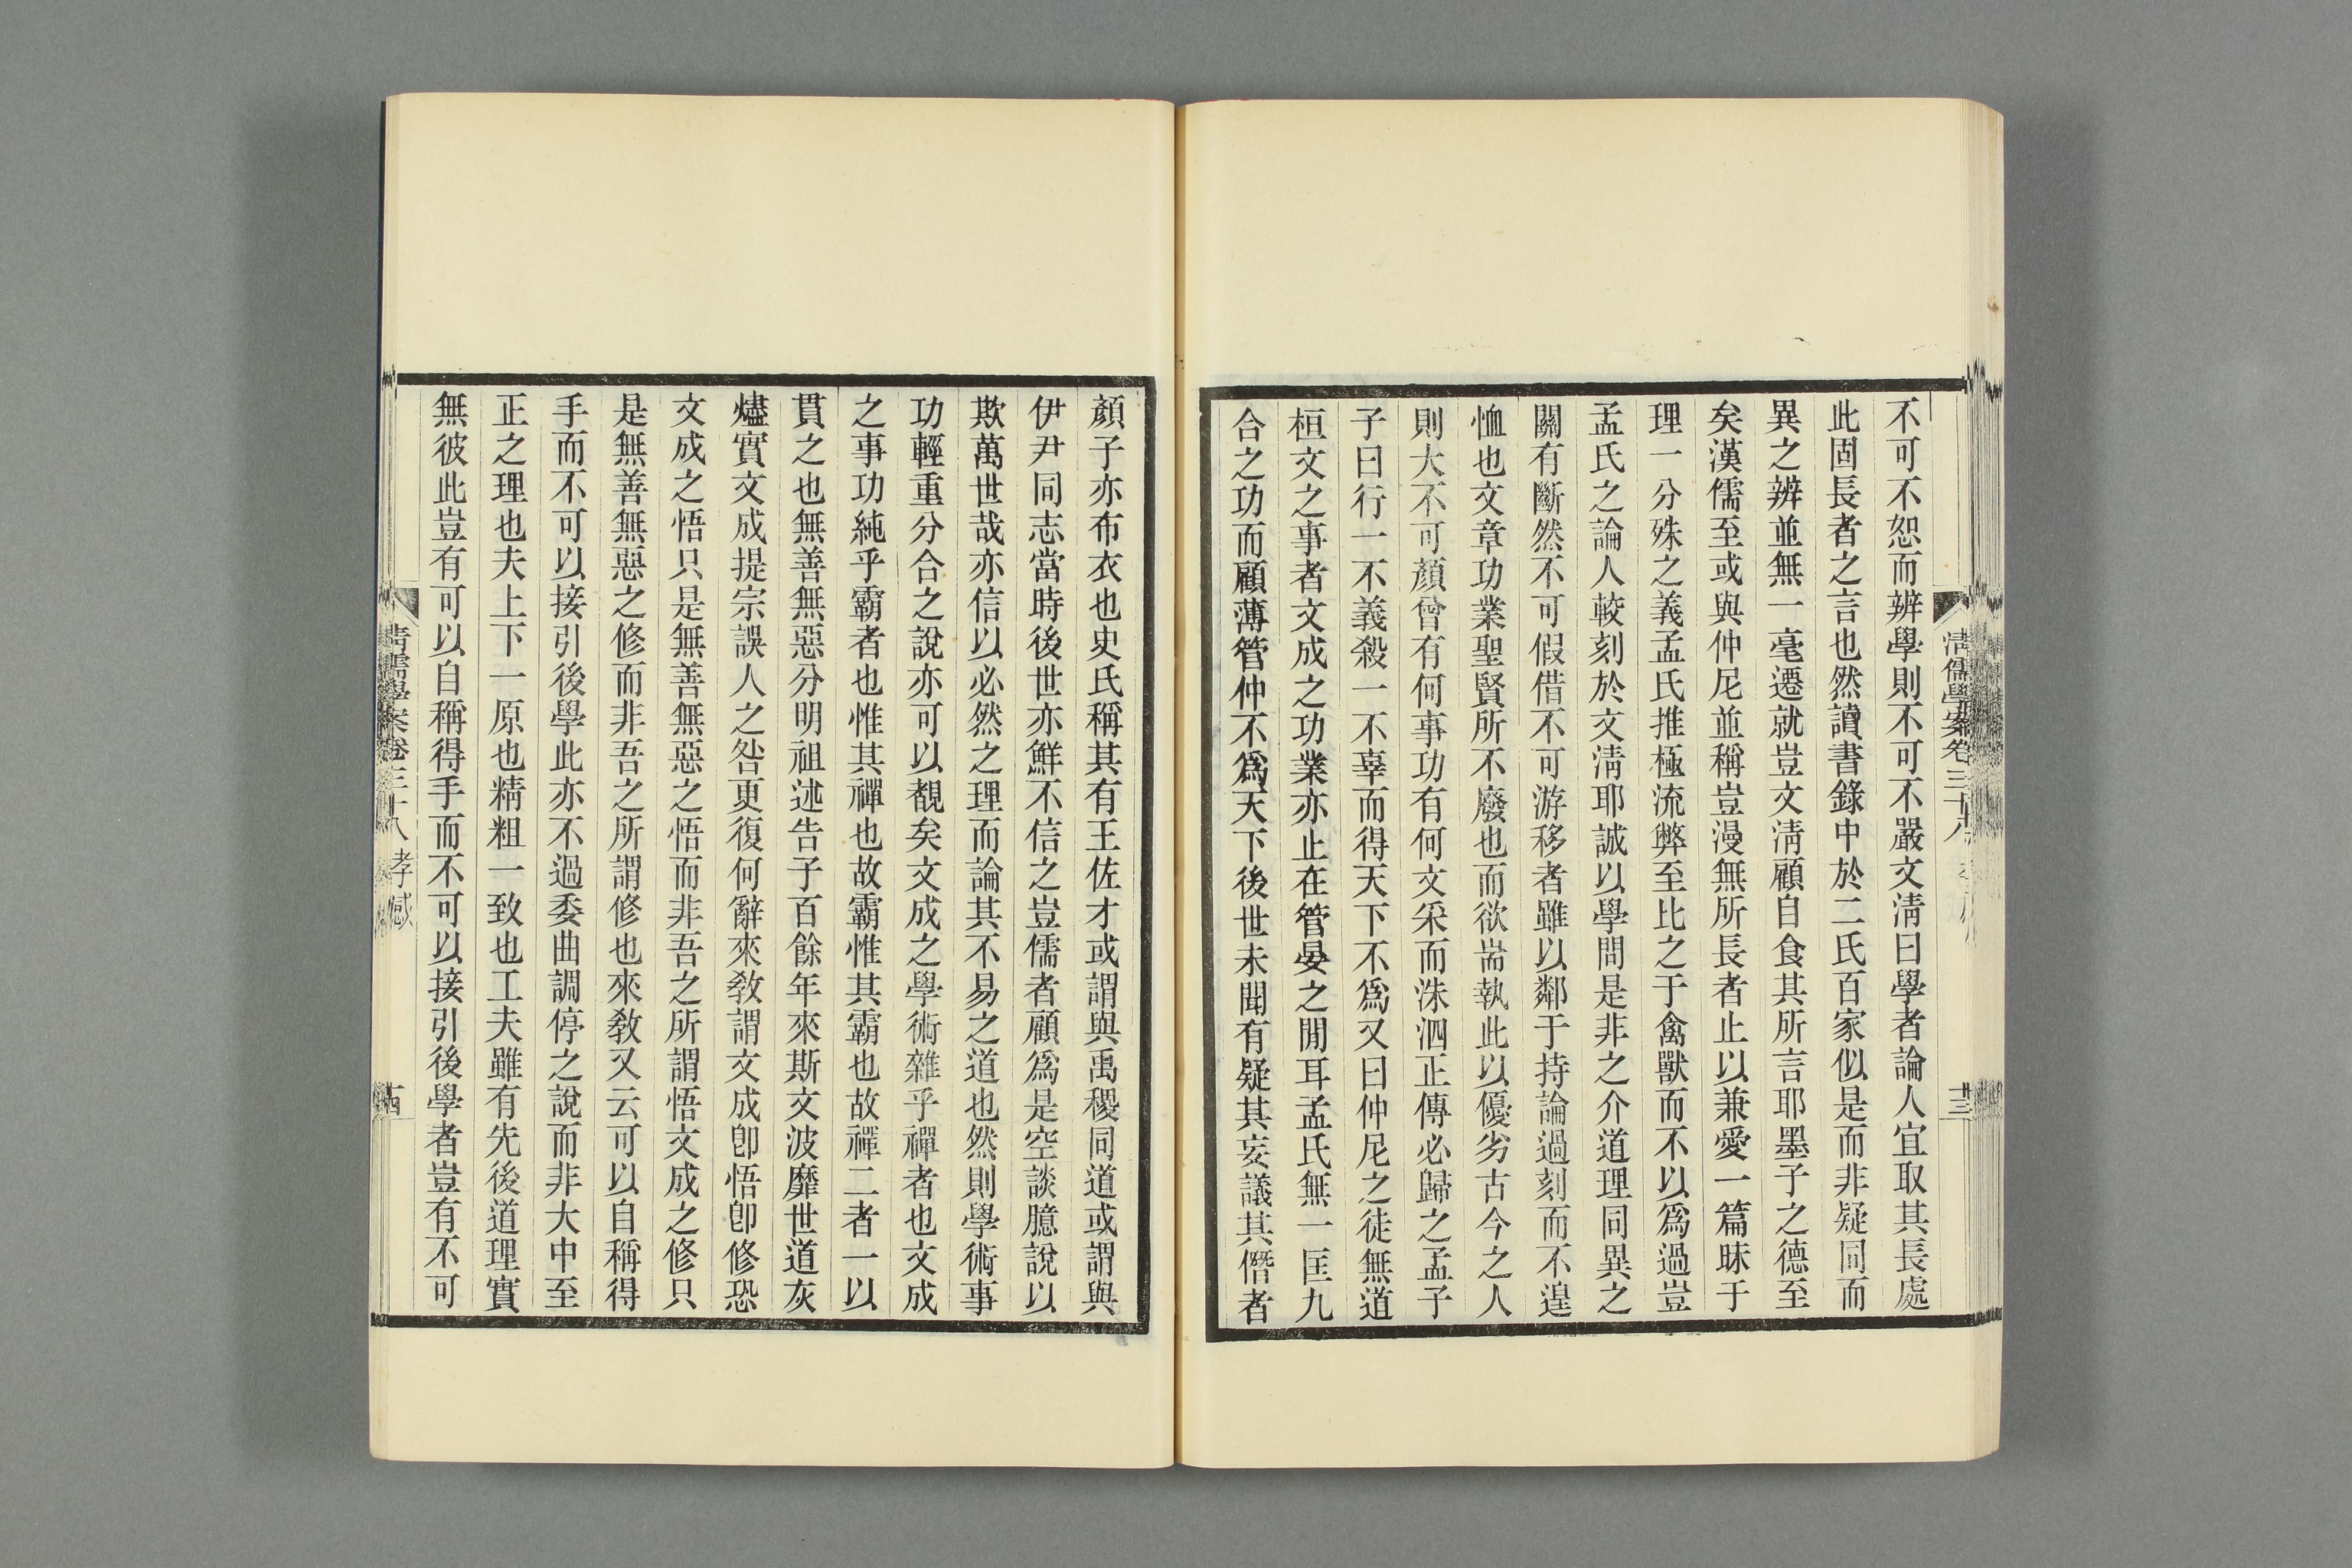 不可不恕而辨學則不可不嚴文淸曰學者論人宜取其長處
此固長者之言也然讀書錄中於二氏百家似是而非疑同而
異之辨並無一毫遷就豈文淸顧自食其所言耶墨子之德至
矣漢儒至或與仲尼並稱豈漫無所長者止以兼愛一篇昧于
理一分殊之義孟氏推極流弊至比之于禽獸而不以爲過豈
孟氏之論人較刻於文淸耶誠以學問是非之介道理同異之
關有斷然不可假借不可游移者雖以鄰于持論過刻而不遑
恤也文章功業聖賢所不廢也而欲耑執此以優劣古今之人
則大不可顏曾有何事功有何文采而洙泗正傳必歸之孟子
子曰行一不義殺一不辜而得天下不爲又曰仲尼之徒無道
桓文之事者文成之功業亦止在管晏之閒耳孟氏無一匡九
合之功而顧薄管仲不爲天下後世未聞有疑其妄議其僭者
清儒學案卷三十八
十三
顏子亦布衣也史氏稱其有王佐才或謂與禹稷同道或謂與
伊尹同志當時後世亦鮮不信之豈儒者顧爲是空談臆說以
欺萬世哉亦信以必然之理而論其不易之道也然則學術事
功輕重分合之說亦可以覩矣文成之學術雜乎禪者也文成
之事功純乎霸者也惟其禪也故霸惟其霸也故禪二者一以
貫之也無善無惡分明祖述告子百餘年來斯文波靡世道灰
燼實文成提宗誤人之咎更復何辭來敎謂文成卽悟卽修恐
文成之悟只是無善無惡之悟而非吾之所謂悟文成之修只
是無善無惡之修而非吾之所謂修也來敎又云可以自稱得
手而不可以接引後學此亦不過委曲調停之說而非大中至
正之理也夫上下一原也精粗一致也工夫雖有先後道理實
無彼此豈有可以自稱得手而不可以接引後學者豈有不可
清儒學案卷三十八 孝感
十四